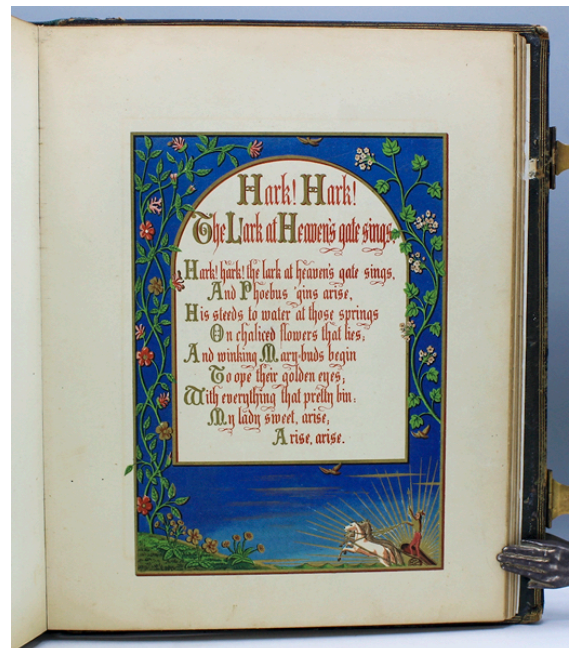 Hark! Hark!
The Lark at Heaven's gate sings.
Hark! hark! the lark at heaven's gate sings,
And Phoebus 'gins arise,
His steeds to water at those springs
On chaliced flowers that lies;
And winking Mary-buds begin
To ope their golden eyes;
With everything that pretty bin:
My lady sweet, arise;
Arise, arise.